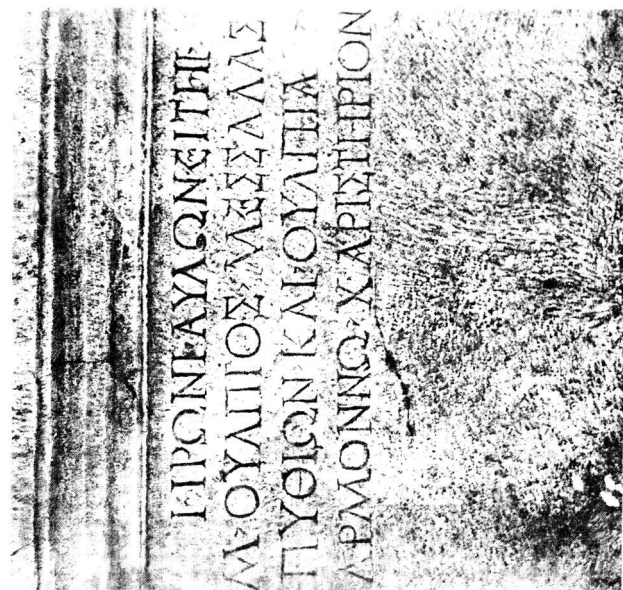 ΗΡΩΝΙ ΑΥΛΩΝΕΙΤΗΙ
Μ· ΟΥΛΠΙΟΣ ΜΕΣΣΑΛΑΣ
ΠΥΘΙΩΝ ΚΑΙ ΟΥΛΠΙΑ
ΑΡΜΟΝΝΩ· ΧΑΡΙΣΤΗΡΙΟΝ